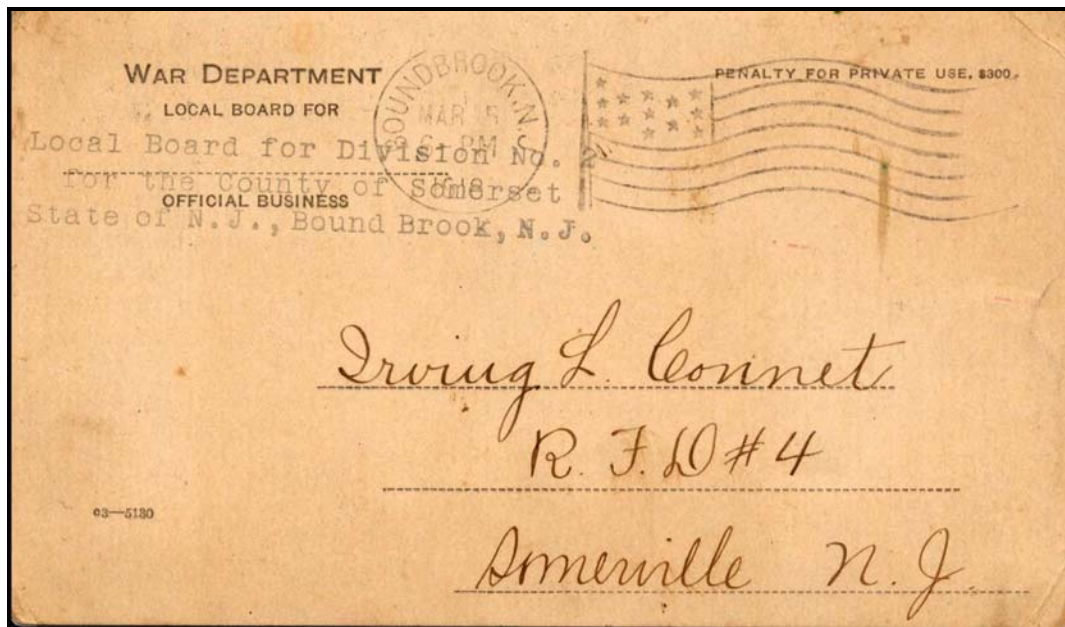 WAR DEPARTMENT
LOCAL BOARD FOR
Local Board for Division No. 2
for the County of Somerset
OFFICIAL BUSINESS
State of N.J., Bound Brook, N.J.
BOUND BROOK, N.J.
MAR 5
6 - PM
1918
PENALTY FOR PRIVATE USE, $300.
Irving L. Connet
R. F. D #4
Somerville N. J.
03—5130